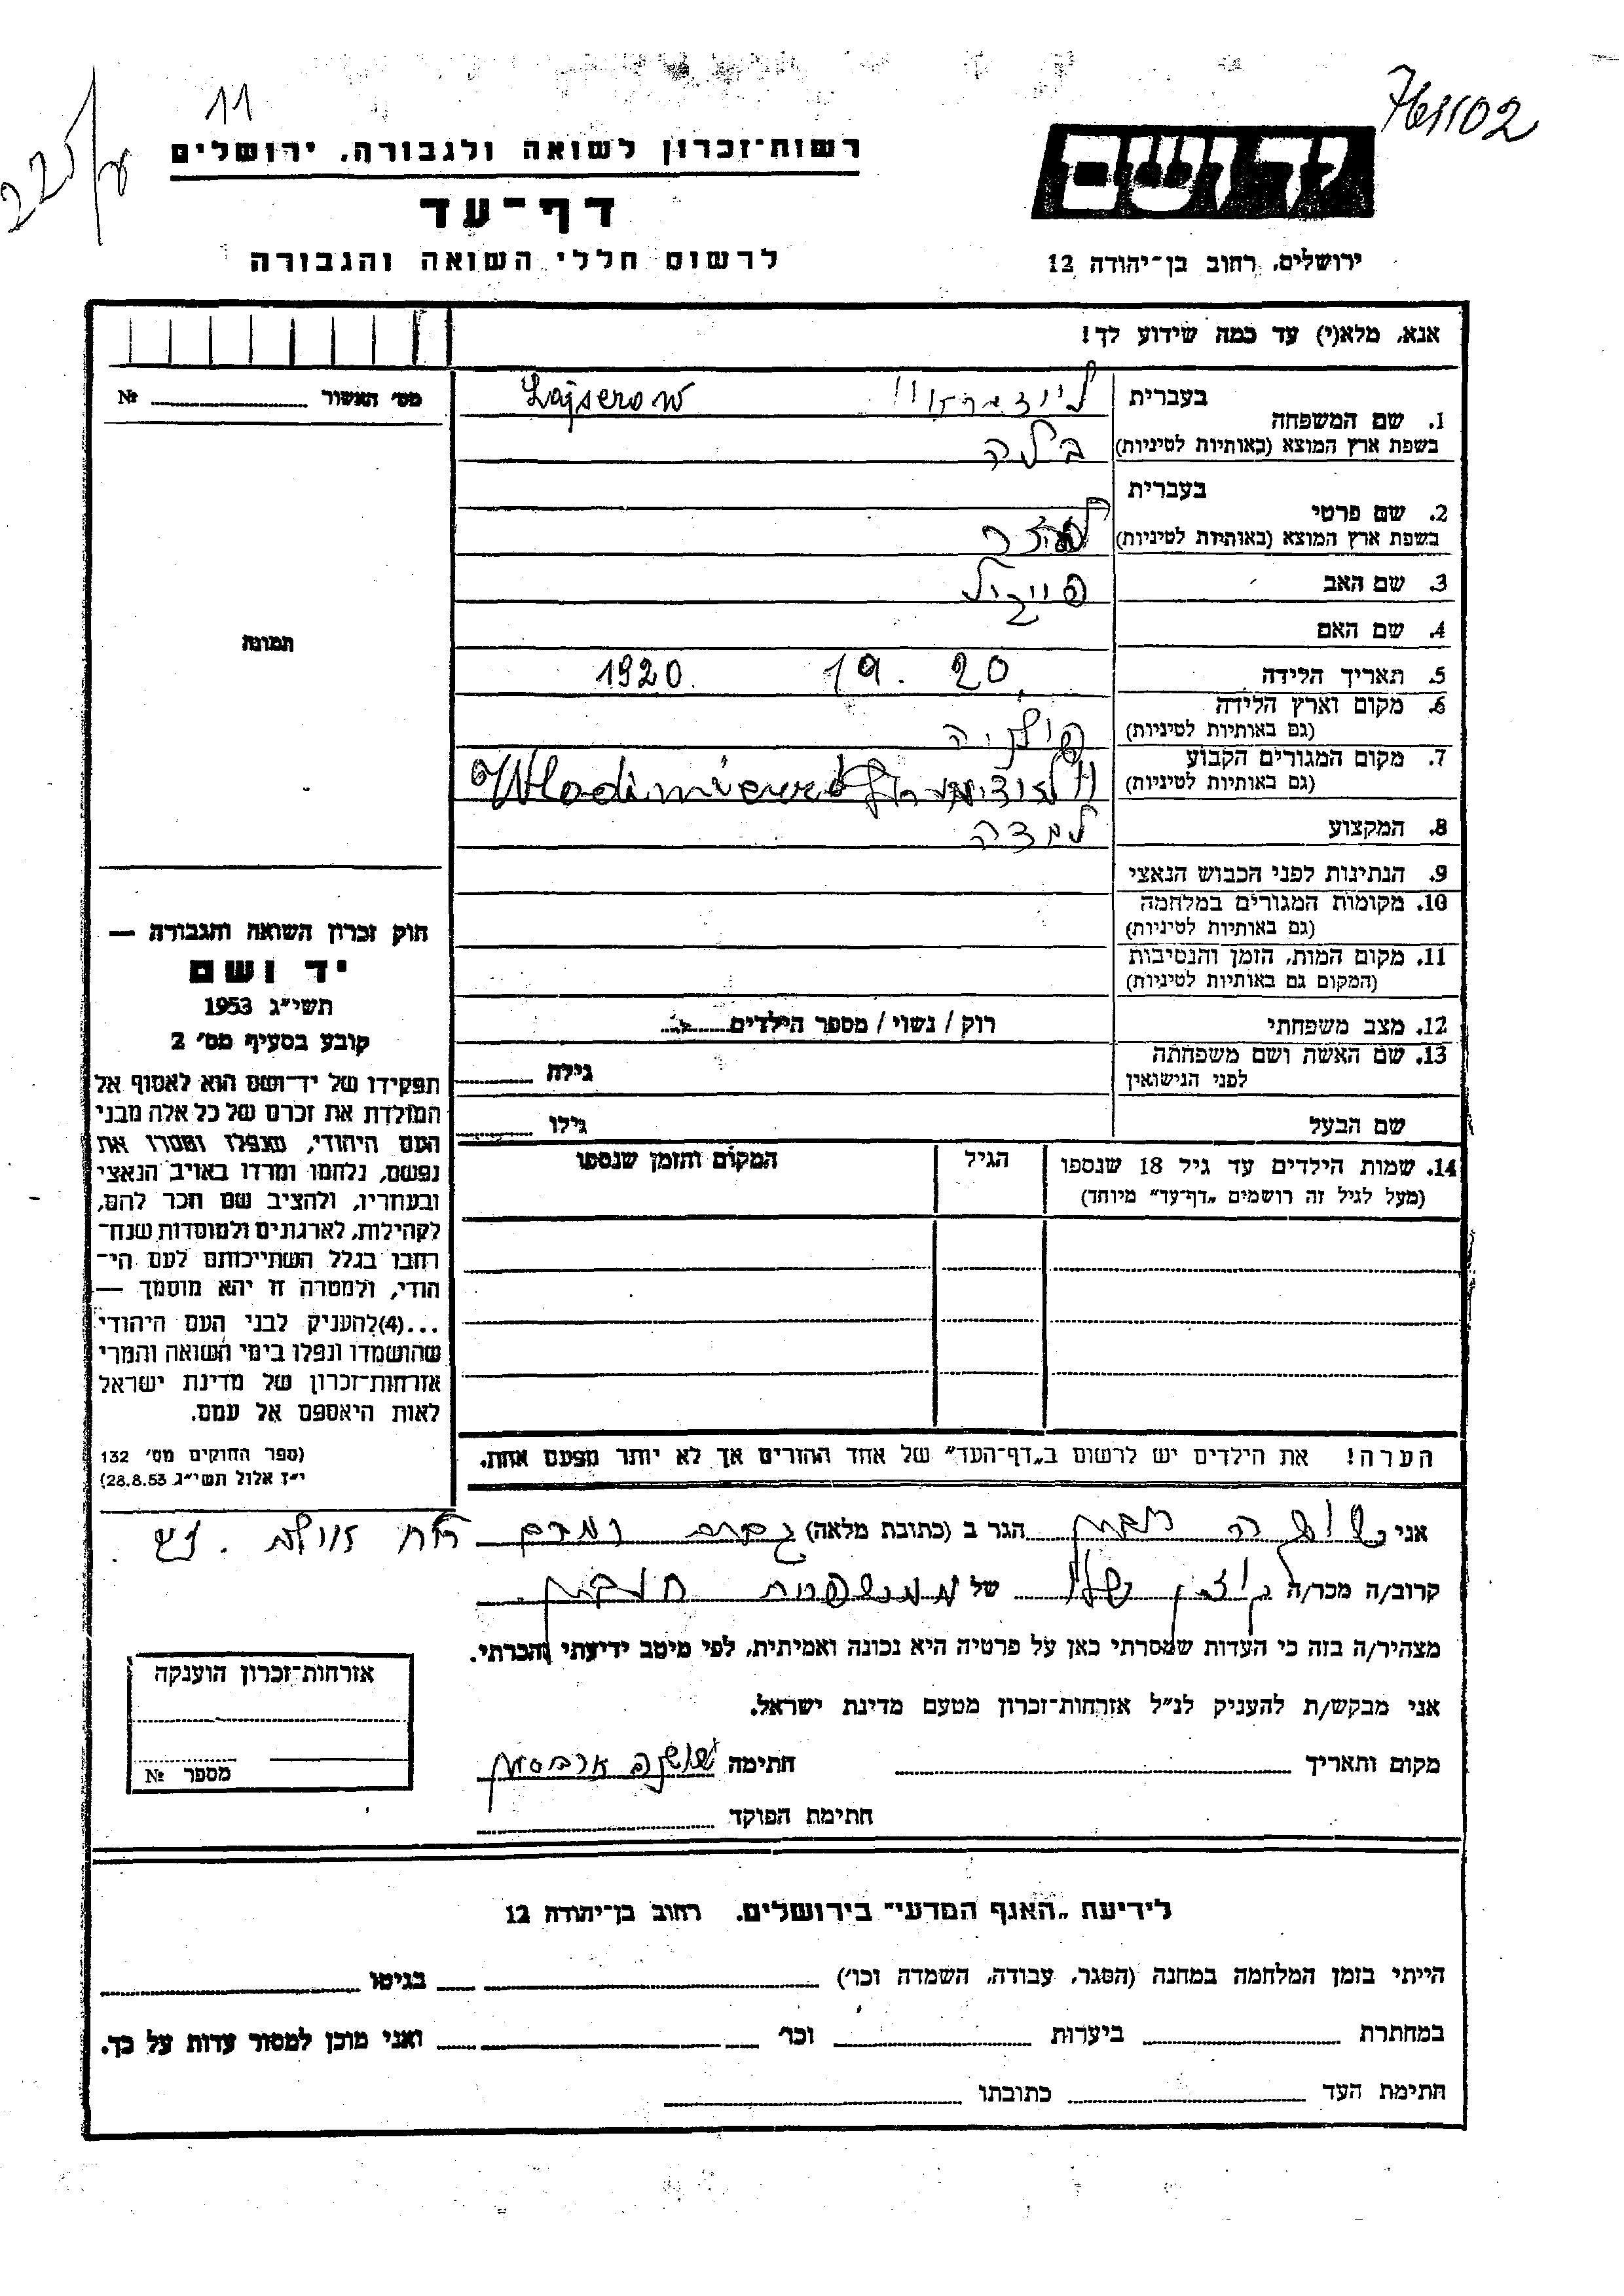 11
761102
225/ע
רשות־זכרון לשואה ולגבורה, ירושלים
דף־עד
לרשום חללי השואה והגבורה
יד ושם
ירושלים, רחוב בן־יהודה 12
אנא, מלא(י) עד כמה שידוע לך!
מס׳ האשור № 
1. שם המשפחה
בעברית
Lajserow
בשפת ארץ המוצא (באותיות לטיניות)
בלה
2. שם פרטי
בעברית
בשפת ארץ המוצא (באותיות לטיניות)
3. שם האב
פייגיל
4. שם האם
5. תאריך הלידה 20. 19. 1920.
6. מקום וארץ הלידה
(גם באותיות לטיניות)
פולניה
7. מקום המגורים הקבוע
(גם באותיות לטיניות)
8. המקצוע
9. הנתינות לפני הכבוש הנאצי
10. מקומות המגורים במלחמה
(גם באותיות לטיניות)
11. מקום המות, הזמן והנסיבות
(המקום גם באותיות לטיניות)
12. מצב משפחתי רוק / נשוי / מספר הילדים
13. שם האשה ושם משפחתה
לפני הנישואין גילה
שם הבעל גילו
14. שמות הילדים עד גיל 18 שנספו הגיל המקום והזמן שנספו
(מעל לגיל זה רושמים „דף־עד״ מיוחד)
הערה! את הילדים יש לרשום ב„דף־העד״ של אחד ההורים אך לא יותר מפעם אחת.
תמונה
חוק זכרון השואה והגבורה —
יד ושם
תשי״ג 1953
קובע בסעיף מס׳ 2
תפקידו של יד־ושם הוא לאסוף אל
המולדת את זכרם של כל אלה מבני
העם היהודי, שנפלו ומסרו את
נפשם, נלחמו ומרדו באויב הנאצי
ובעוזריו, ולהציב שם וזכר להם,
לקהילות, לארגונים ולמוסדות שנח־
רבו בגלל השתייכותם לעם הי־
הודי, ולמטרה זו יהא מוסמך —
...(4) להעניק לבני העם היהודי
שהושמדו ונפלו בימי השואה והמרי
אזרחות־זכרון של מדינת ישראל
לאות היאספם אל עמם.
(ספר החוקים מס׳ 132
י״ז אלול תשי״ג 28.8.53)
אני הגר ב (כתובת מלאה)
קרוב/ה מכר/ה של ממשפחת
מצהיר/ה בזה כי העדות שמסרתי כאן על פרטיה היא נכונה ואמיתית, לפי מיטב ידיעתי והכרתי.
אני מבקש/ת להעניק לנ״ל אזרחות־זכרון מטעם מדינת ישראל.
מקום ותאריך חתימה
חתימת הפוקד
אזרחות־זכרון הוענקה
מספר №
לידיעת „האגף המדעי״ בירושלים, רחוב בן־יהודה 12
הייתי בזמן המלחמה במחנה (הסגר, עבודה, השמדה וכו׳) בגיטו
במחתרת ביערות וכו׳ ואני מוכן למסור עדות על כך.
חתימת העד כתובתו